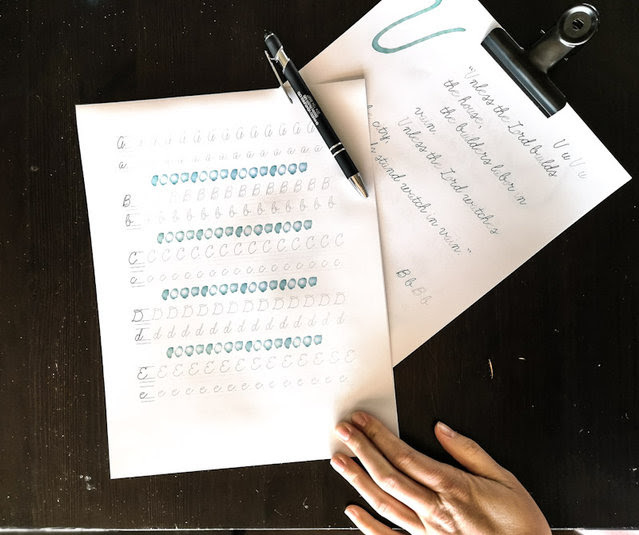 A A A A A A A A A A A A A
a a a a a a a a a a a a a
B B B B B B B B B B B B B
b b b b b b b b b b b b b
C C C C C C C C C C C C C C
c c c c c c c c c c c c c c
D D D D D D D D D D D D D D
d d d d d d d d d d d d d d
E E E E E E E E E E E E E E
e e e e e e e e e e e e e e
U
"Unless the Lord builds
the house,
the builders labor in
vain
Unless the Lord watches
city,
stand watch in vain."
U u U u
B b B b